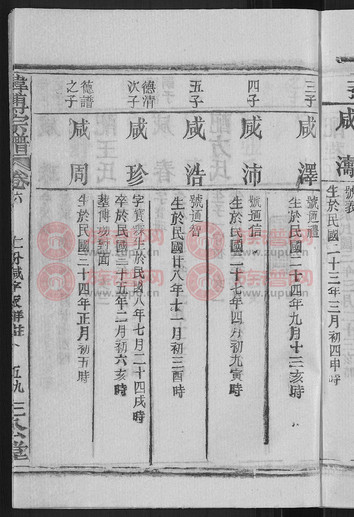 咸濤
號義
生於民國二十二年三月初四申時
三子
咸澤
號通禮
生於民國二十四年九月十三亥時
四子
咸沛
號通信
生於民國二十七年四月初九寅時
五子
咸浩
號通智
生於民國廿八年十一月初三酉時
德清
次子
咸珍
字寶 生於民國八年七月二十四戌時
卒於民國三十五年二月初六亥時
葬傅功對面
德譜
之子
咸周
生於民國三十四年正月初五時
韓傅宗譜
卷六
咸字
五九
三公堂